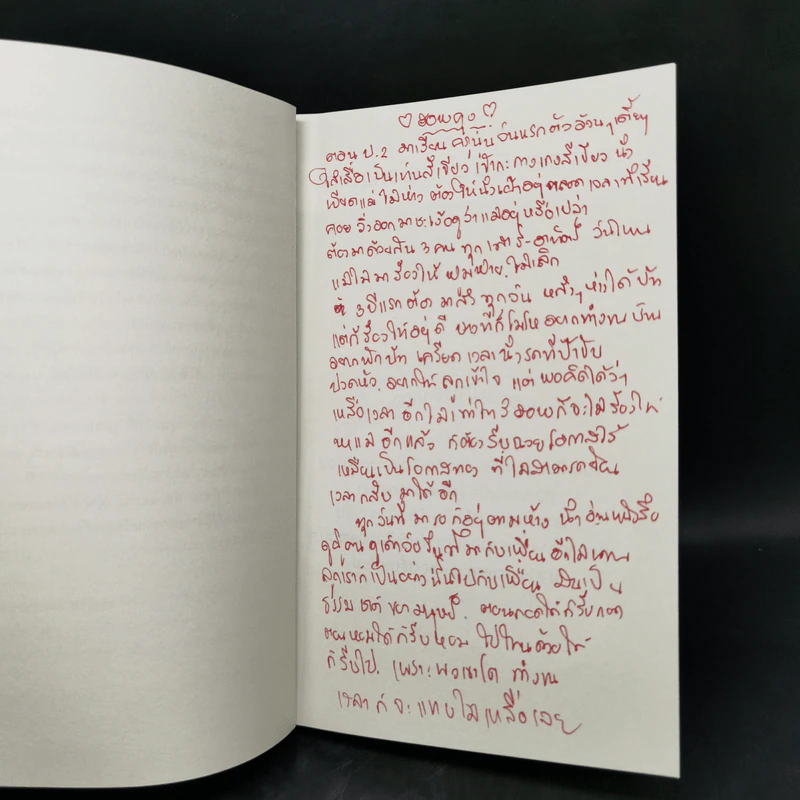 ♡ ♡
ตอน ป.2 มาเรียน วันแรก ตัวอ้วนๆ เตี้ยๆ
ใส่เสื้อ สีเขียว กางเกงสีเขียว นั่ง
ไม่ห่าง ต้องให้นั่งเฝ้าอยู่ตลอดเวลาที่เรียน
คอยวิ่งออกมาชะเง้อดูว่าแม่อยู่หรือเปล่า
ต้องมาด้วยกัน 3 คน ทุกเสาร์-อาทิตย์ วันไหน
แม่ไม่มาร้องไห้ ไม่เลิก
3 ปีแรกต้องมาส่งทุกวัน หลังๆ ห่างได้บ้าง
แต่ก็ร้องไห้อยู่ดี บางทีก็โมโห อยากทำงานบ้าง
อยากพักบ้าง เครียดเวลานั่งรถที่ป๊าขับ
ปวดหัว อยากให้ลูกเข้าใจ แต่พอคิดได้ว่า
เหลือเวลาอีกไม่เท่าไหร่ ก็จะไม่ร้องไห้
หาแม่อีกแล้ว ก็ต้องรีบฉวยโอกาสไว้
เหมือนเป็นโอกาสทอง ที่ไม่สามารถย้อน
เวลากลับมาได้อีก
ทุกวันที่มารอก็อยู่ตามห้าง นั่งอ่านหนังสือ
ดูผู้คน ดูเด็กวัยรุ่นที่มากับเพื่อน อีกไม่นาน
ลูกเราก็เป็นอย่างนั้นไปกับเพื่อน มันเป็น
ธรรมชาติของมนุษย์ ตอนกอดได้ก็รีบกอด
ตอนหอมได้ก็รีบหอม ไปไหนด้วยได้
ก็รีบไป เพราะพอเขาโต ทำงาน
เวลาก็จะแทบไม่เหลือเลย